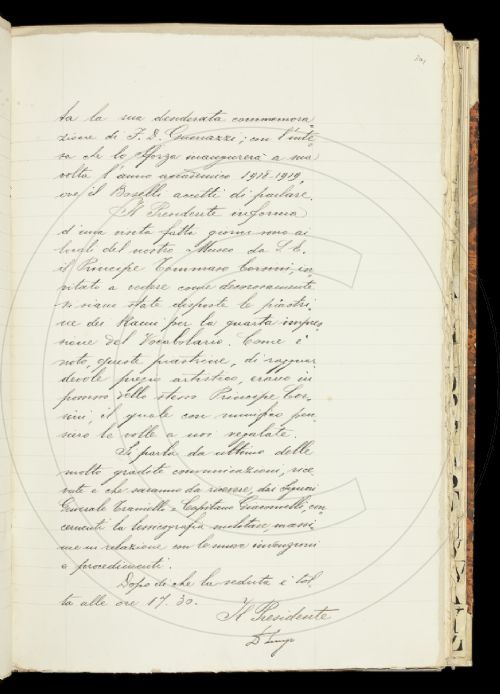 ta la sua desiderata commemora-
zione di F. D. Guerrazzi; con l'inte-
sa che lo Sforza inaugurerà a sua
volta l'anno accademico 1918-1919,
ove il Boselli accetti di parlare.
Il Presidente informa
d'una visita fatta giorni sono ai
locali del nostro Museo da S. E.
il Principe Tommaso Corsini, in-
vitato a vedere come decorosamente
si siano state disposte le piastri-
ne dei Nacci per la quarta impres-
sione del Vocabolario. Come è
noto, queste piastrine, di ragguar-
devole pregio artistico, erano in
possesso dello stesso Principe Cor-
sini, il quale con munifico pen-
siero le volle a noi regalate.
Si parla da ultimo delle
molto gradite comunicazioni, rice-
vute e che saranno da ricevere, dai Signori
Generale Craniello e Capitano Giacomelli, con-
cernenti la lessicografia militare, massi-
me in relazione con le nuove invenzioni
e procedimenti.
Dopo di che la seduta è tol-
ta alle ore 17.30.
Il Presidente